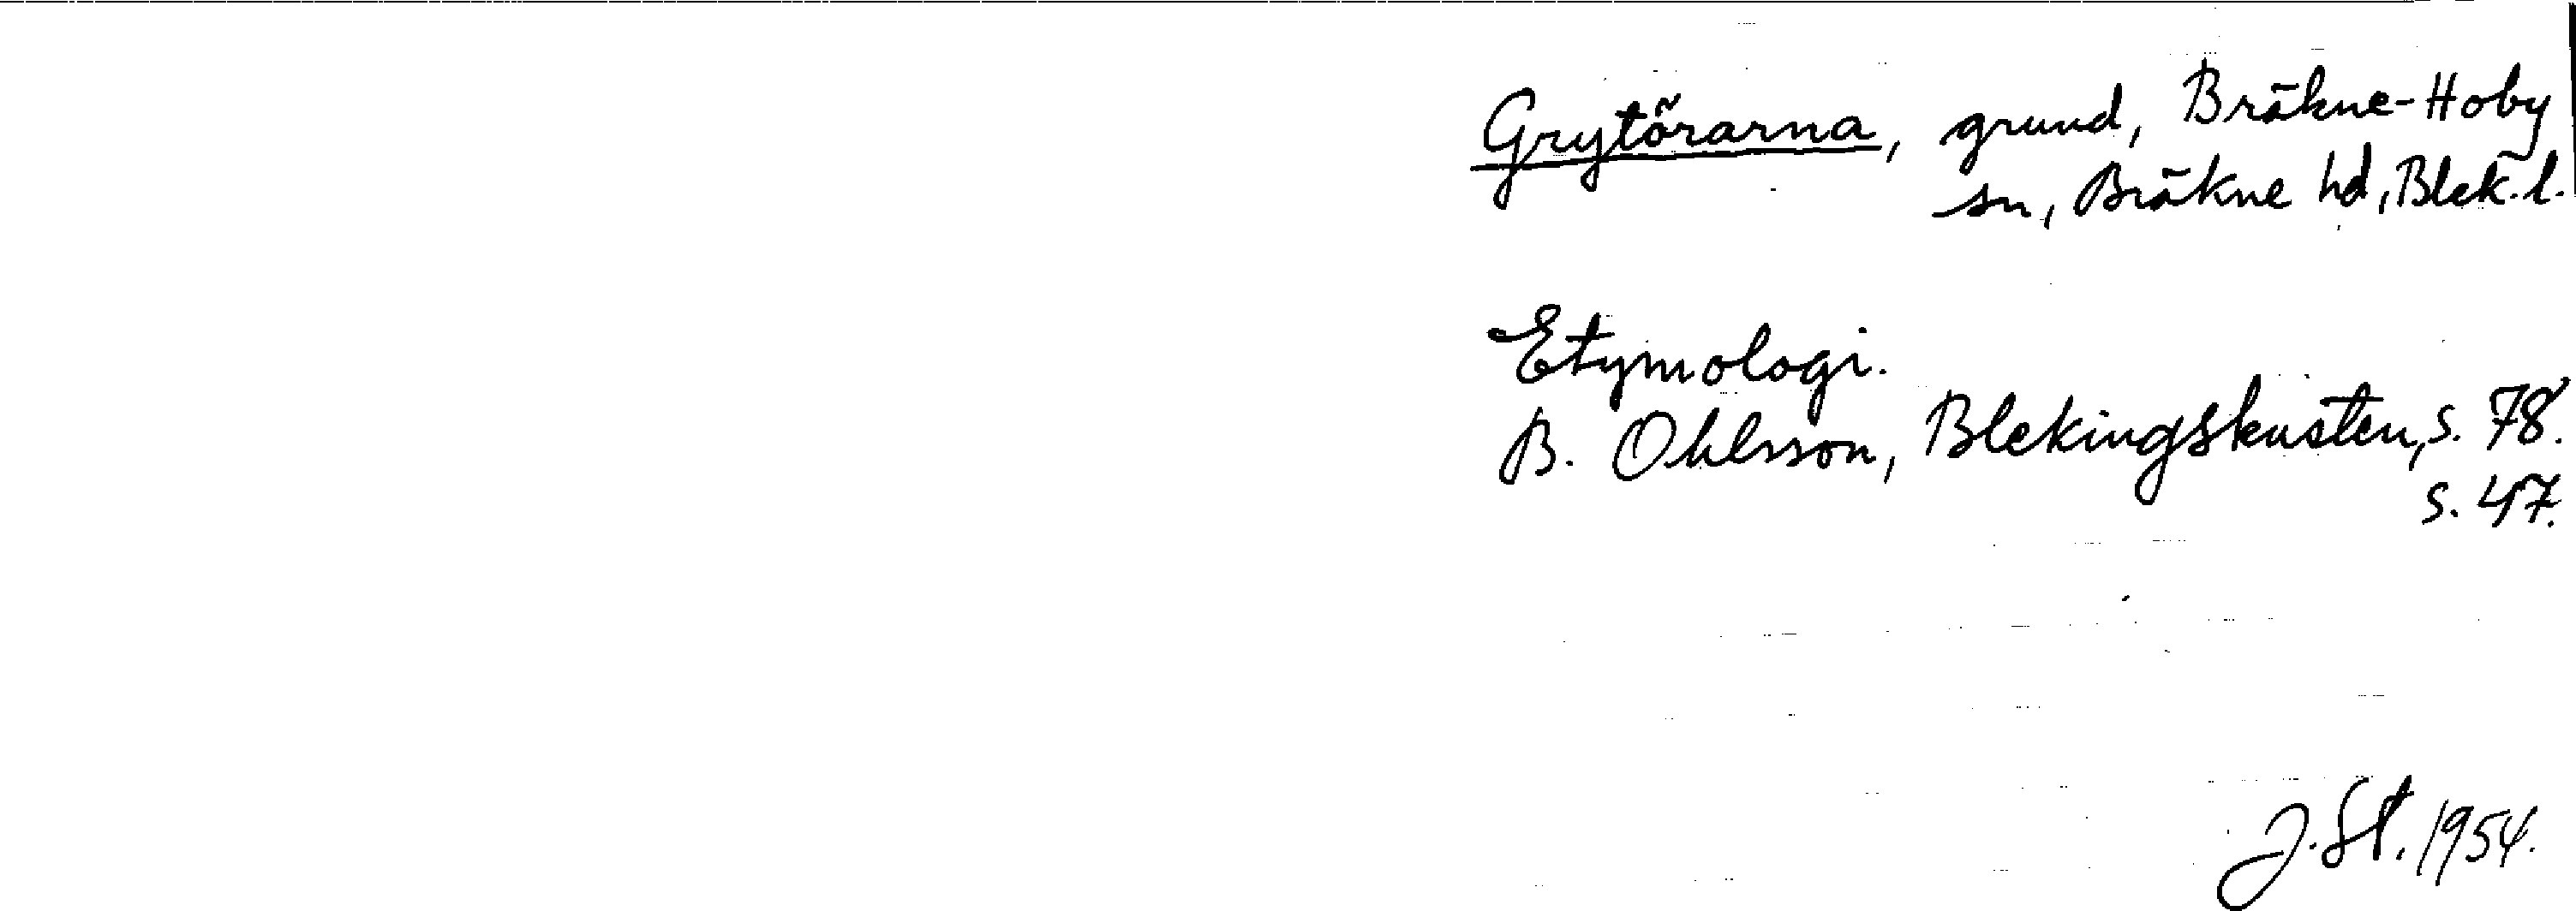 Grytörarna, grund, Bräkne-Hoby
sn, Bräkne hd, Blek. l.
Etymologi.
B. Ohlsson, Blekingskusten, s. 78.
s. 47.
J. St. 1954.